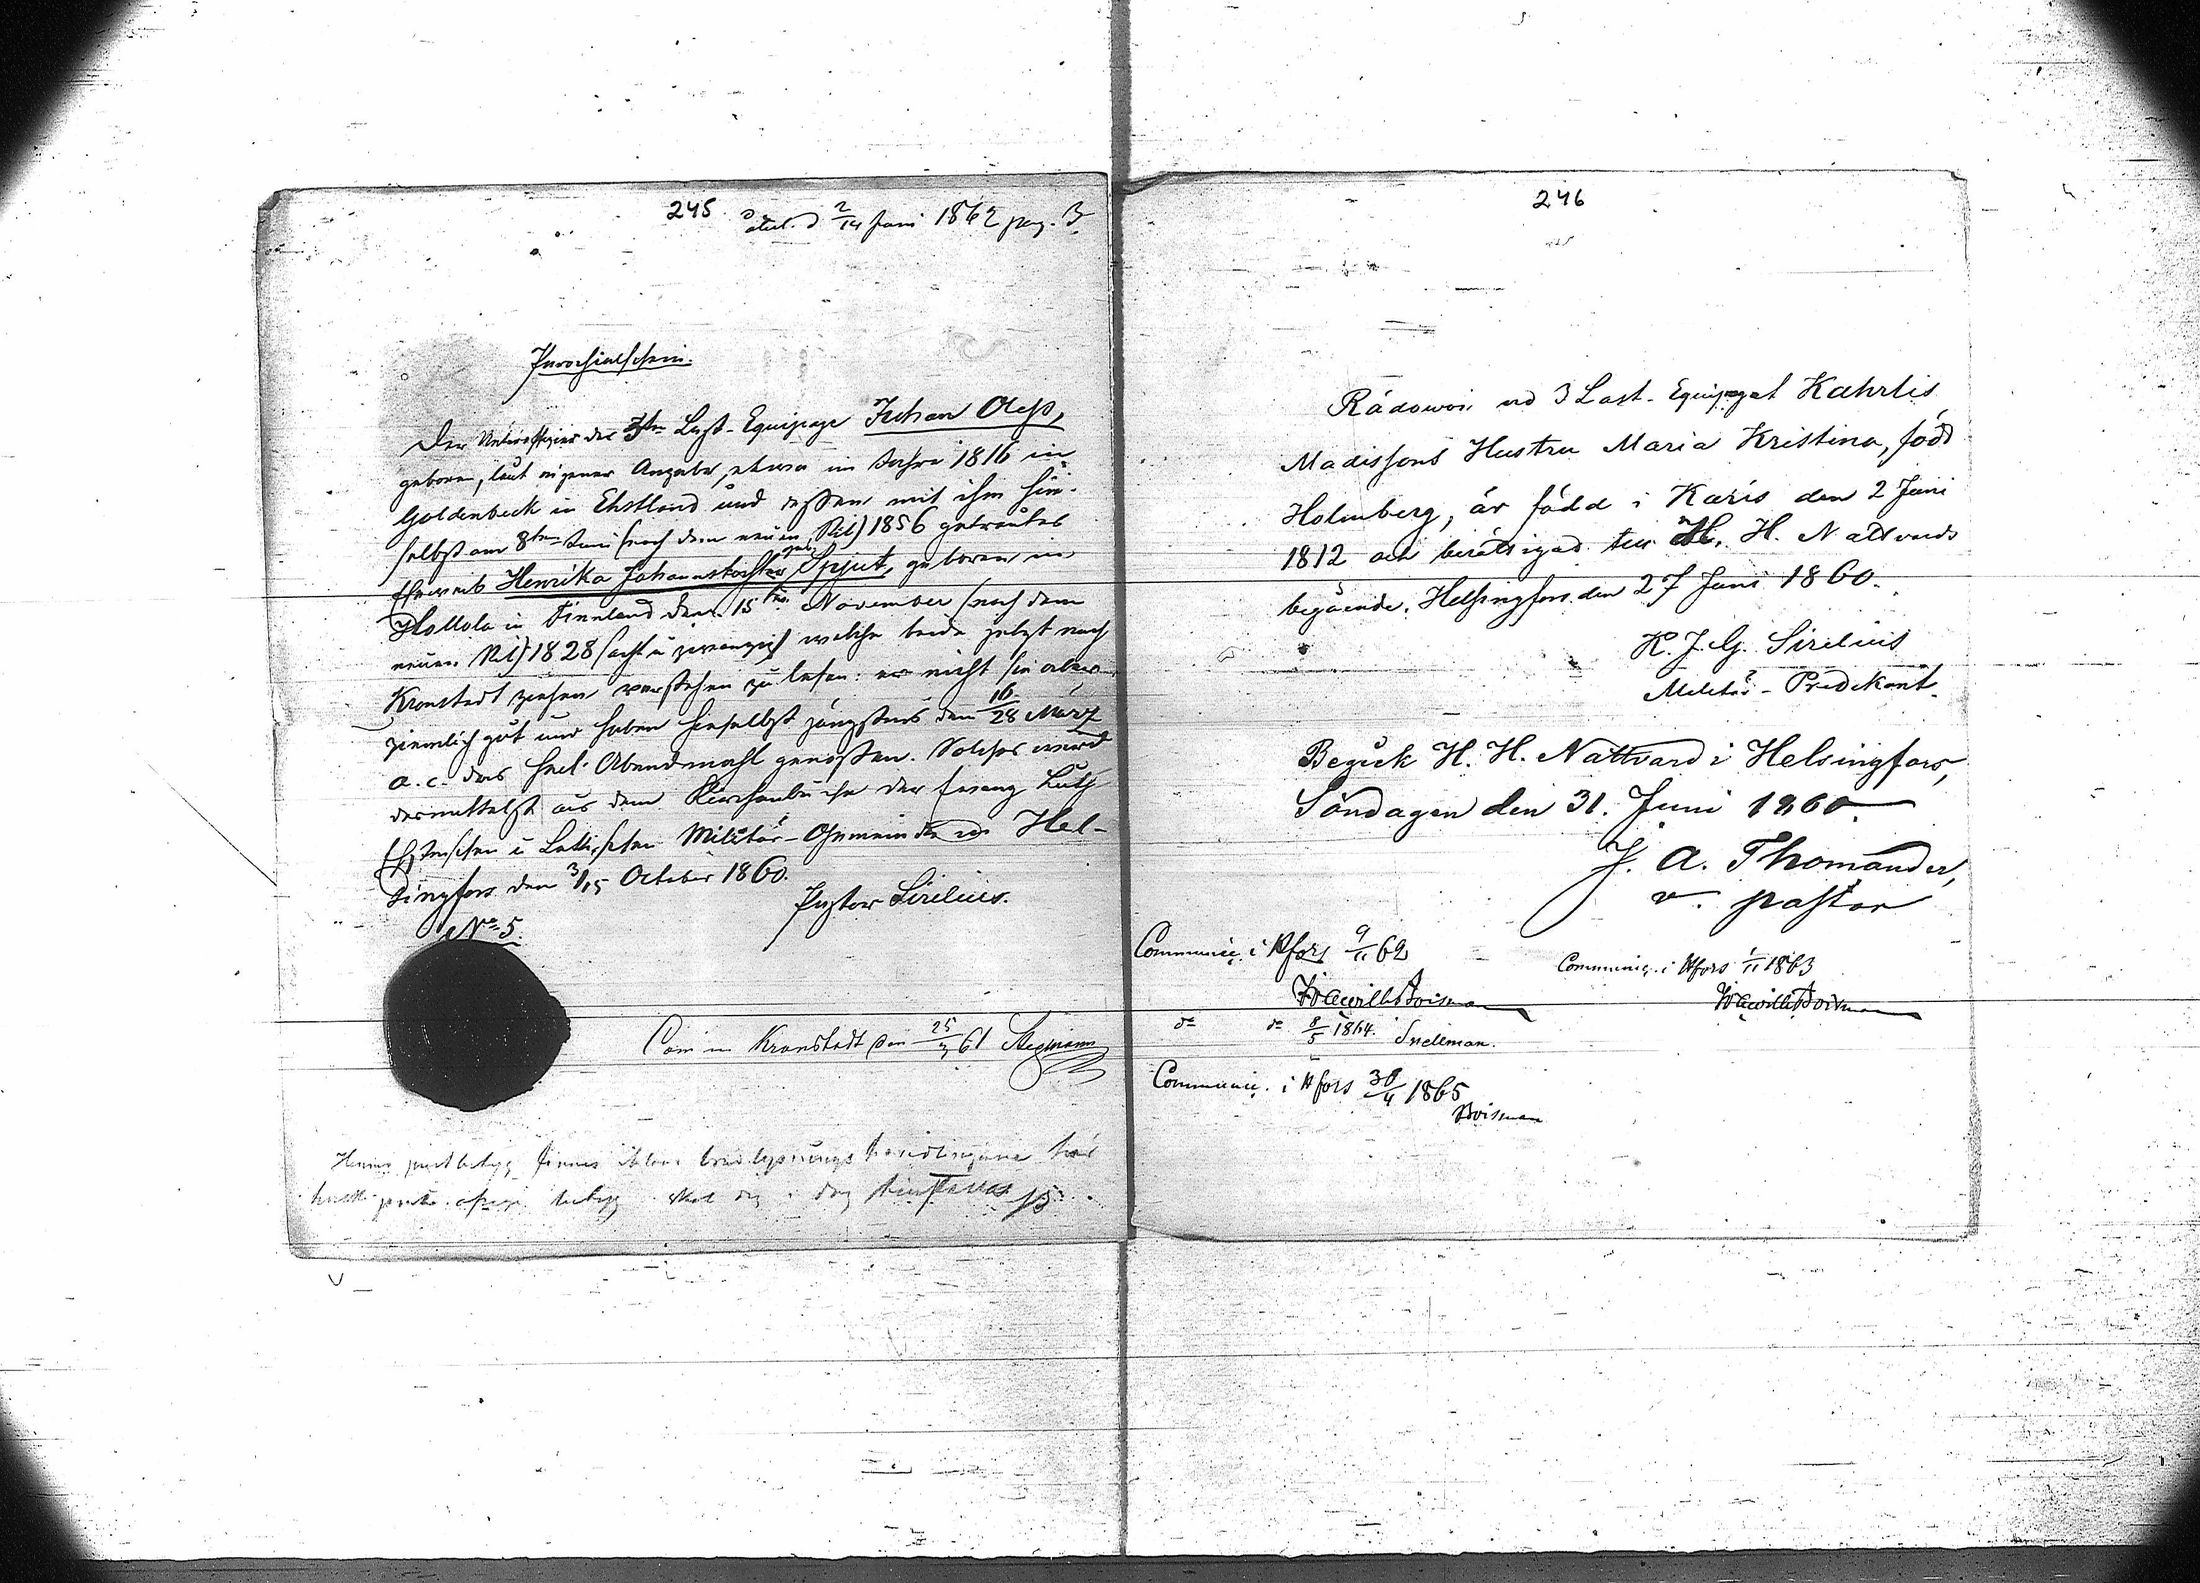 245
d. 2/14 Juni 1862 pag. 3
Parochialschein.
Der Unteroffizier der 3ten Last-Equipage Juhan Oless,
geboren, laut eigener Angabe, etwa im Jahre 1816 in
Goldenbeck in Ehstland und dessen mit ihm hie-
selbst am 8ten Juni (nach dem neuen Stil) 1856 getrautes
Eheweib Henrika Johannstochter geb. Spjut, geboren in
Hollola in Finnland den 15ten November (nach dem
neuen Stil) 1828 (acht u zwanzig) welche beide jetzt nach
Kronstadt ziehen verstehen zu lesen: er nicht sie aber
ziemlich gut und haben hieselbst jüngstens den 16/28 März
a. c. das heil. Abendmahl genossen. Solches wird
desmittelst aus dem Kirchenbuche der evang. Luth
Ehstnischen u Lettischen Militär-Gemeinde in Hel-
singfors den 3/15 October 1860.
Pastor Sirelius.
No 5.
Com in Kronstadt den 25/3 61 Stegmann
Hennes finnes
betyg i dag
246
Rädowoi vid 3 Last-Equipaget Kahrlis
Madissons Hustru Maria Kristina, född
Holmberg, är född i Karis den 2 Juni
1812 och berättigad till H. H. Nattvards
begående. Helsingfors den 27 Juni 1860.
K. J. G. Sirelius
Militär-Predikant.
Begick H. H. Nattvard i Helsingfors,
Söndagen den 31. Juni 1860.
J. A. Thomander,
v. pastor
Communic. i Hfors 9/11 62
Communic. i Hfors 1/11 1863
Boisman
Boisman
do do 8/5 1864. Snellman.
Communic. i Hfors 30/4 1865
Boisman